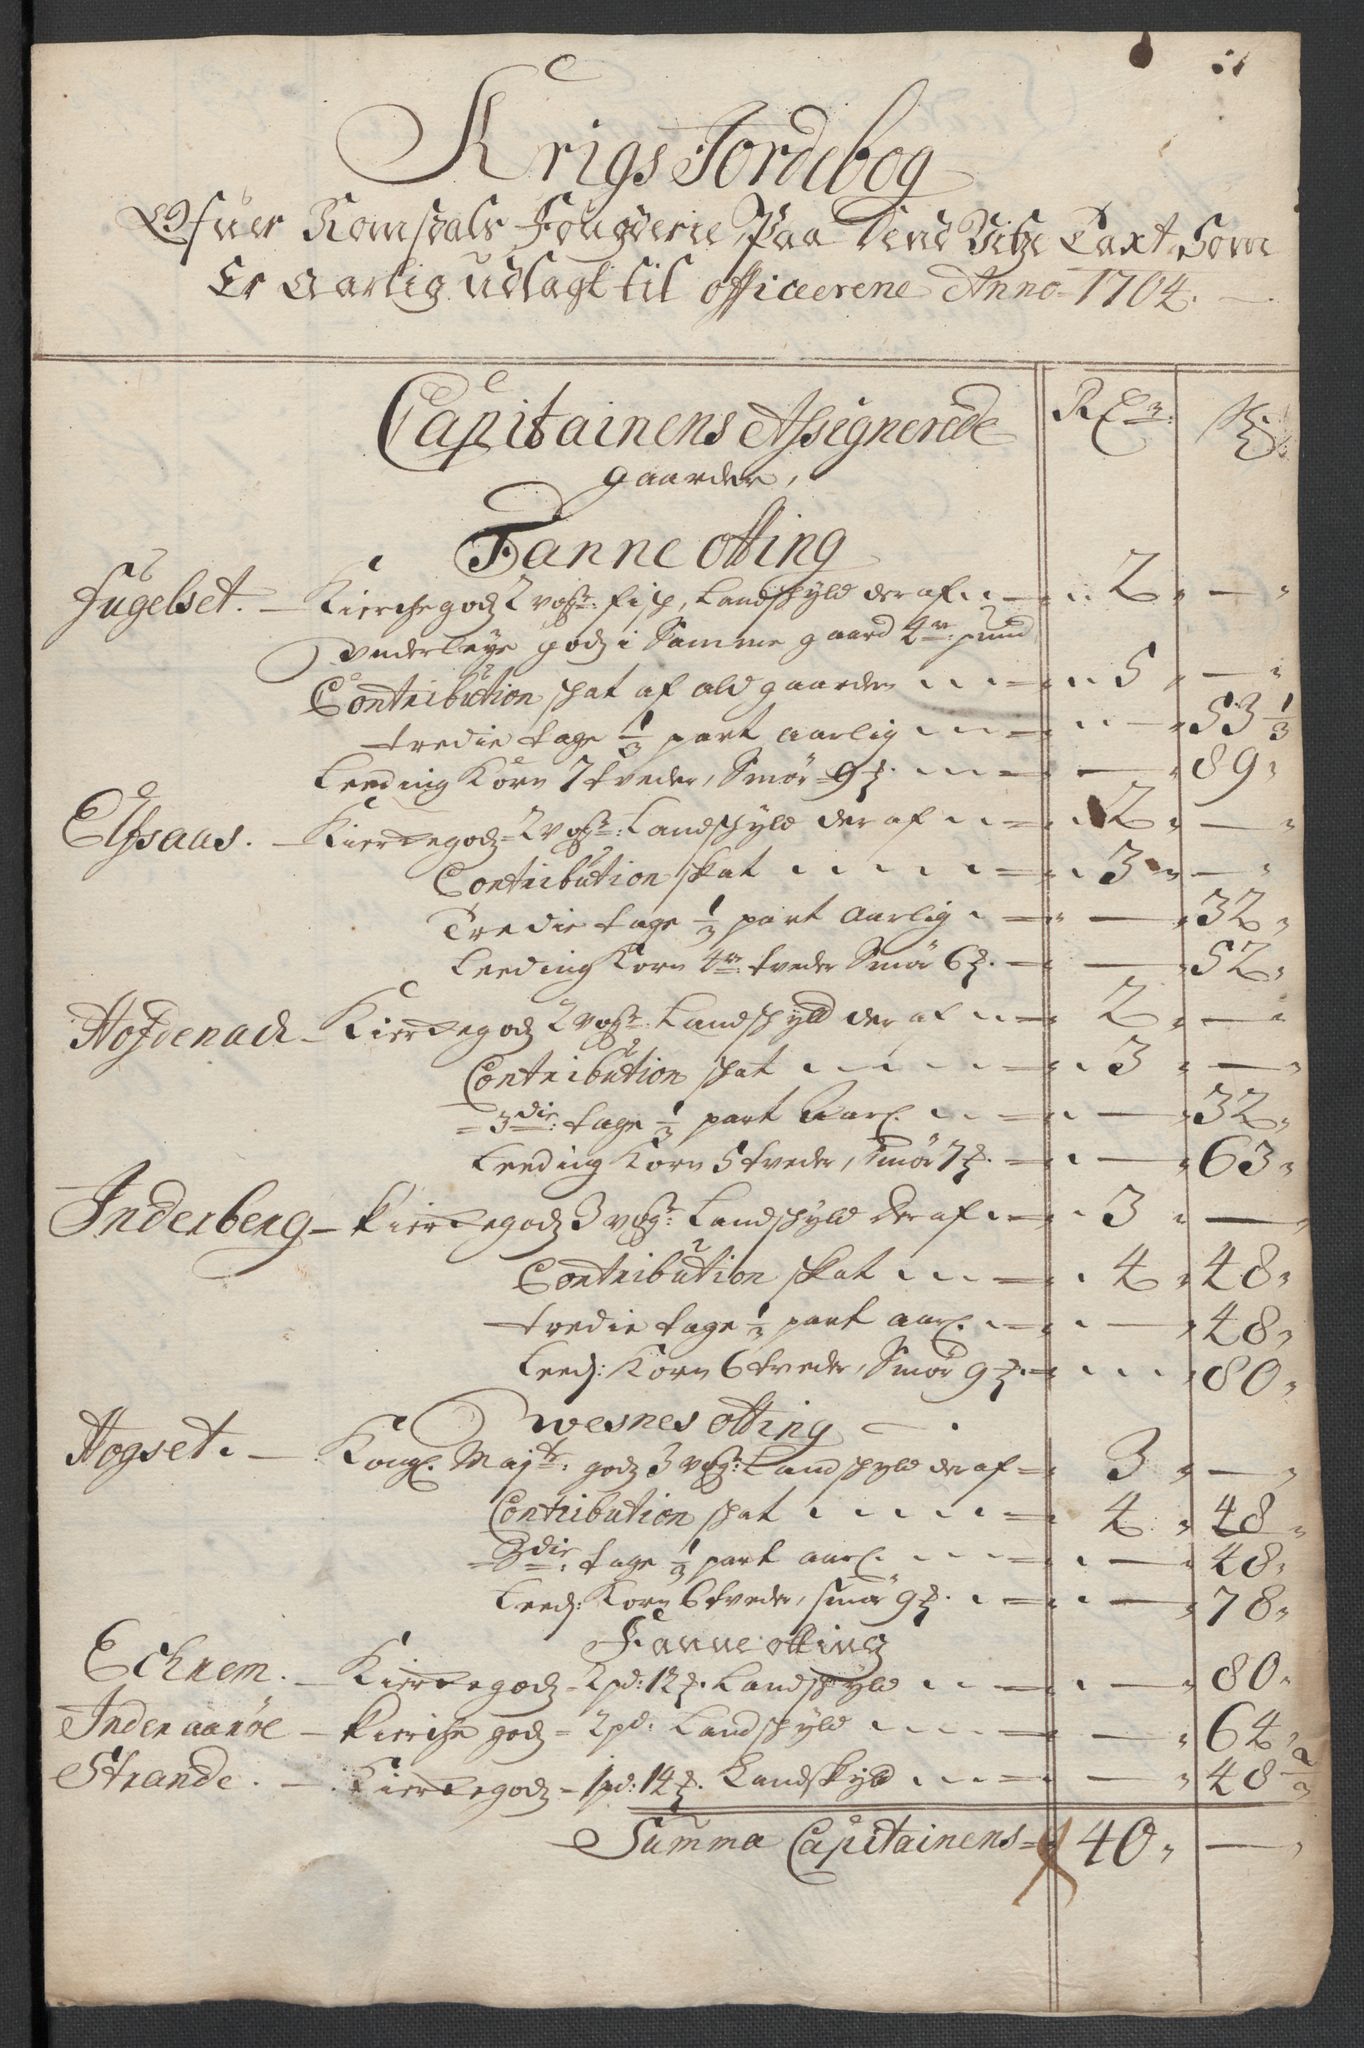 Krigs Jordebog
Ofuer Romsdals Fougderie, Paa Dend Vise Taxt, Som
Er Aarlig udlagt til officerene Anno 1704.
Capitainens Assignerede
gaarder,
Fanne otting
Fugelset. Kierchegodz 2 voger: fisk, Landskyld der af 2 " — "
Underleye godz i Samme gaard 4re pund
Contribution skat af ald gaarden 5 " — "
tredie tage 1/3 part aarlig — " 53 1/3
Leeding Korn 7 tveder, Smør 9 — " 89 "
Elfsaas. Kierchegodz 2 voger: Landskyld der af 2 " — "
Contribution skat 3 " — "
Tredie tage 1/3 part Aarlig — " 32 "
Leeding Korn 4re: tveder Smør 6 — " 52 "
Hofdenach Kierchegodz 2 voger. Landskyld der af 2 " — "
Contribution skat 3 " — "
3die: tage 1/3 part Aarl. — " 32 "
Leeding Korn 5 tveder, Smør 7 — " 63 "
Inderberg Kierchegodz 3 voger: Landskyld Der af 3 " — "
Contribution skat 4 " 48 "
tredie tage 1/3 part aarl. — " 48 "
Leed: Korn 6 tveder, Smør 9 80 "
Wesnes otting
Hogset. Kongl. Majts: godz 3 voger: Landskyld der af 3 " — "
Contribution skat 4 " 48 "
3die: tage 1/3 part aarl. — " 48 "
Leed: Korn 6 tveder, smør 9 — " 78 "
Fanne otting
Echrem. Kierchegodz 2 pd: 12 Landskyld — " 80 "
Inden aarøe Kierche godz 2 pd: Landskyld — " 64 "
Strande. Kierchegodz 1 pd: 14 Landskyld — " 48 2/3
Summa Capitainens 40 " — "